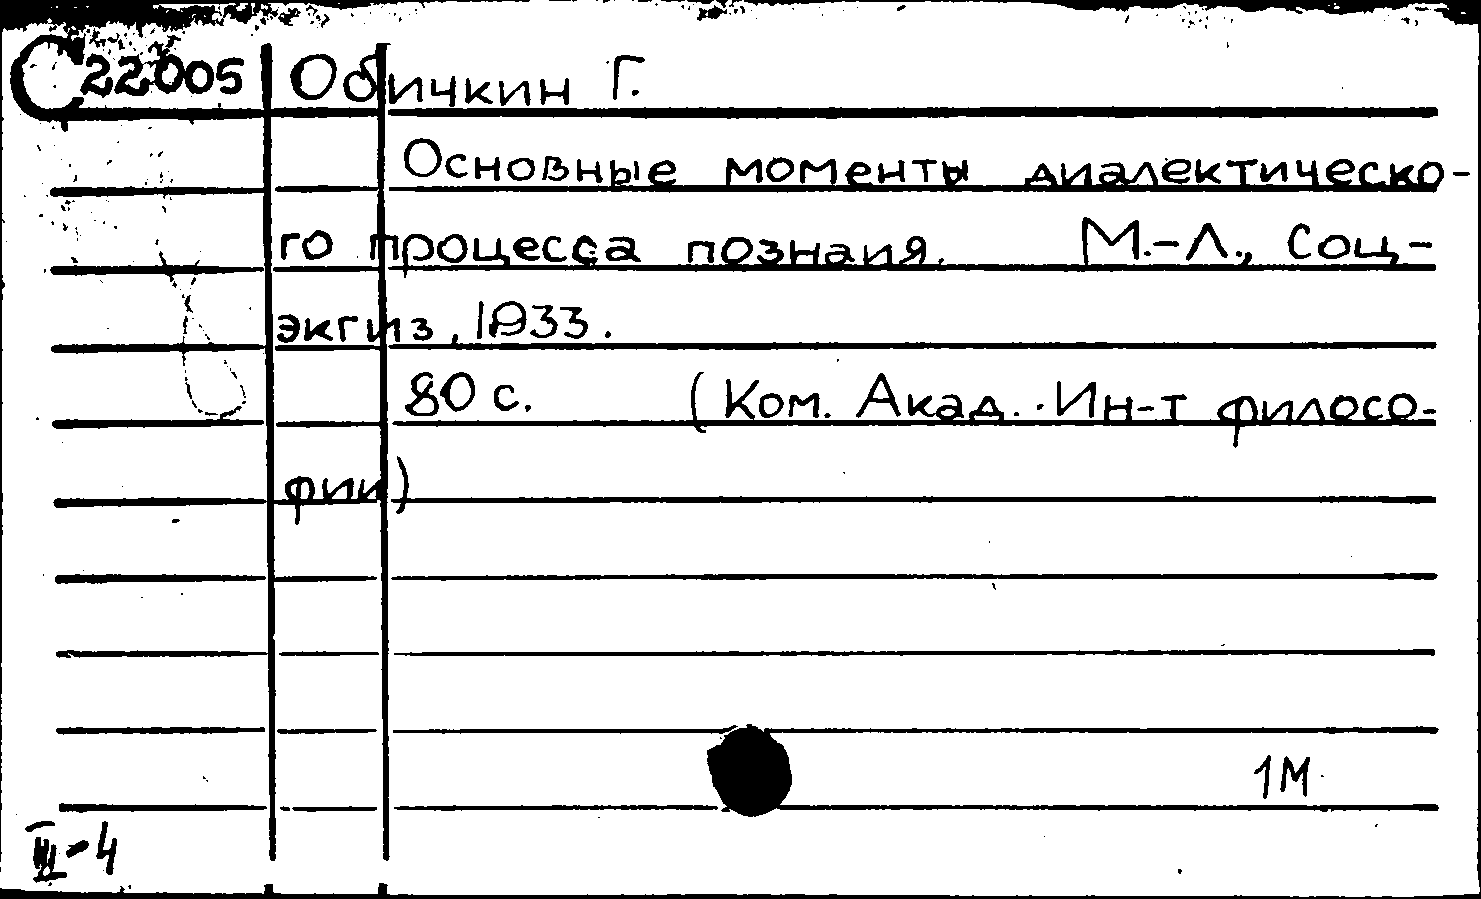 С22005 Обичкин Г.
Основные моменты диалектическо-
го процесса познаия. М.-Л., Соц-
экгиз, 1933.
80 с. (Ком. Акад. Ин-т филосо-
фии)
1М
III-4